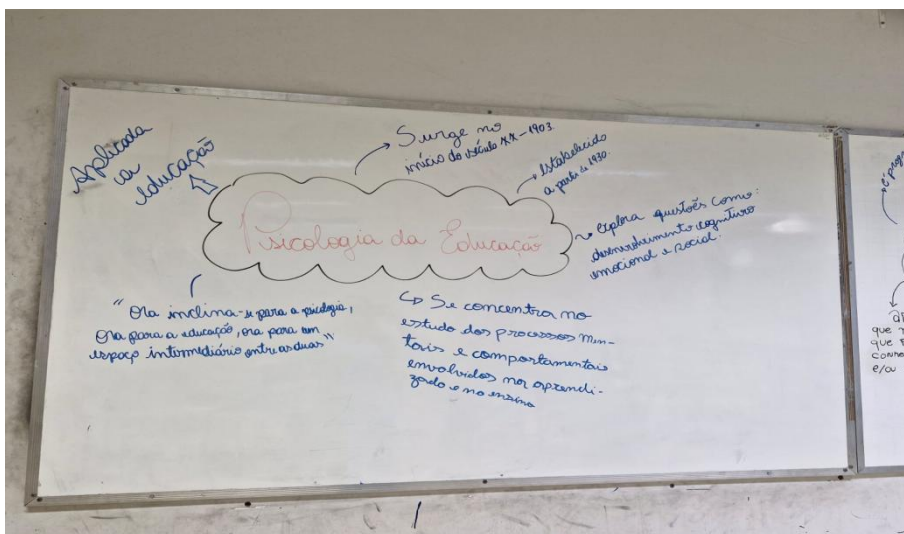 Aplicada
a
educação
Surge no
início do século XX - 1903.
Estabelecido
a partir de 1930.
Psicologia da Educação
explora questões como:
desenvolvimento cognitivo
emocional e social.
"Ora inclina-se para a psicologia,
Ora para a educação, ora para um
espaço intermediário entre as duas"
↳ Se concentra no
estudo dos processos men-
tais e comportamentais
envolvidos no aprendi-
zado e no ensino
que
que
e/ou